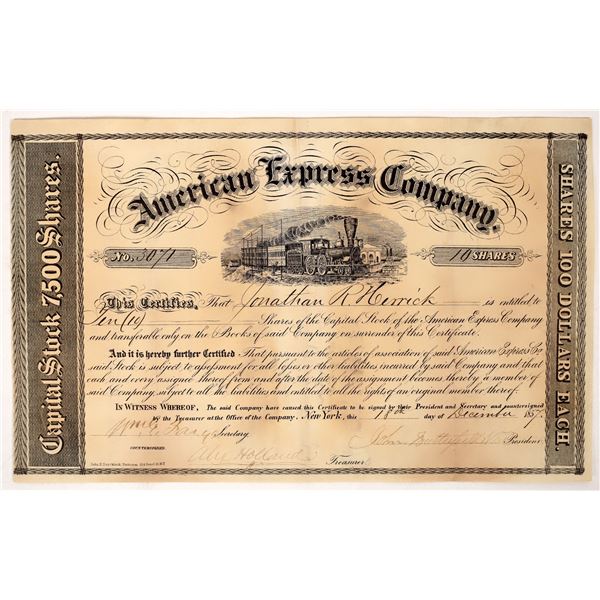 American Express Company.
Capital Stock 7,500 Shares.
SHARES 100 DOLLARS EACH.
No. 3071
10 SHARES
This Certifies, That Jonathan R Herrick is entitled to
Ten (10) Shares of the Capital Stock of the American Express Company
and transferable only on the Books of said Company on surrender of this Certificate.
And it is hereby further Certified That pursuant to the articles of association of said American Express Co
said Stock is subject to assessment for all losses or other liabilities incurred by said Company and that
each and every assignee thereof from and after the date of the assignment becomes thereby a member of
said Company, subject to all the liabilities and entitled to all the rights of an original member thereof.
IN WITNESS WHEREOF, The said Company have caused this Certificate to be signed by their President and Secretary and countersigned
by the Treasurer at the Office of the Company. New York, this 18th day of December 1857.
Secretary.
John Butterfield
President.
COUNTERSIGNED.
Alex Holland
Treasurer.